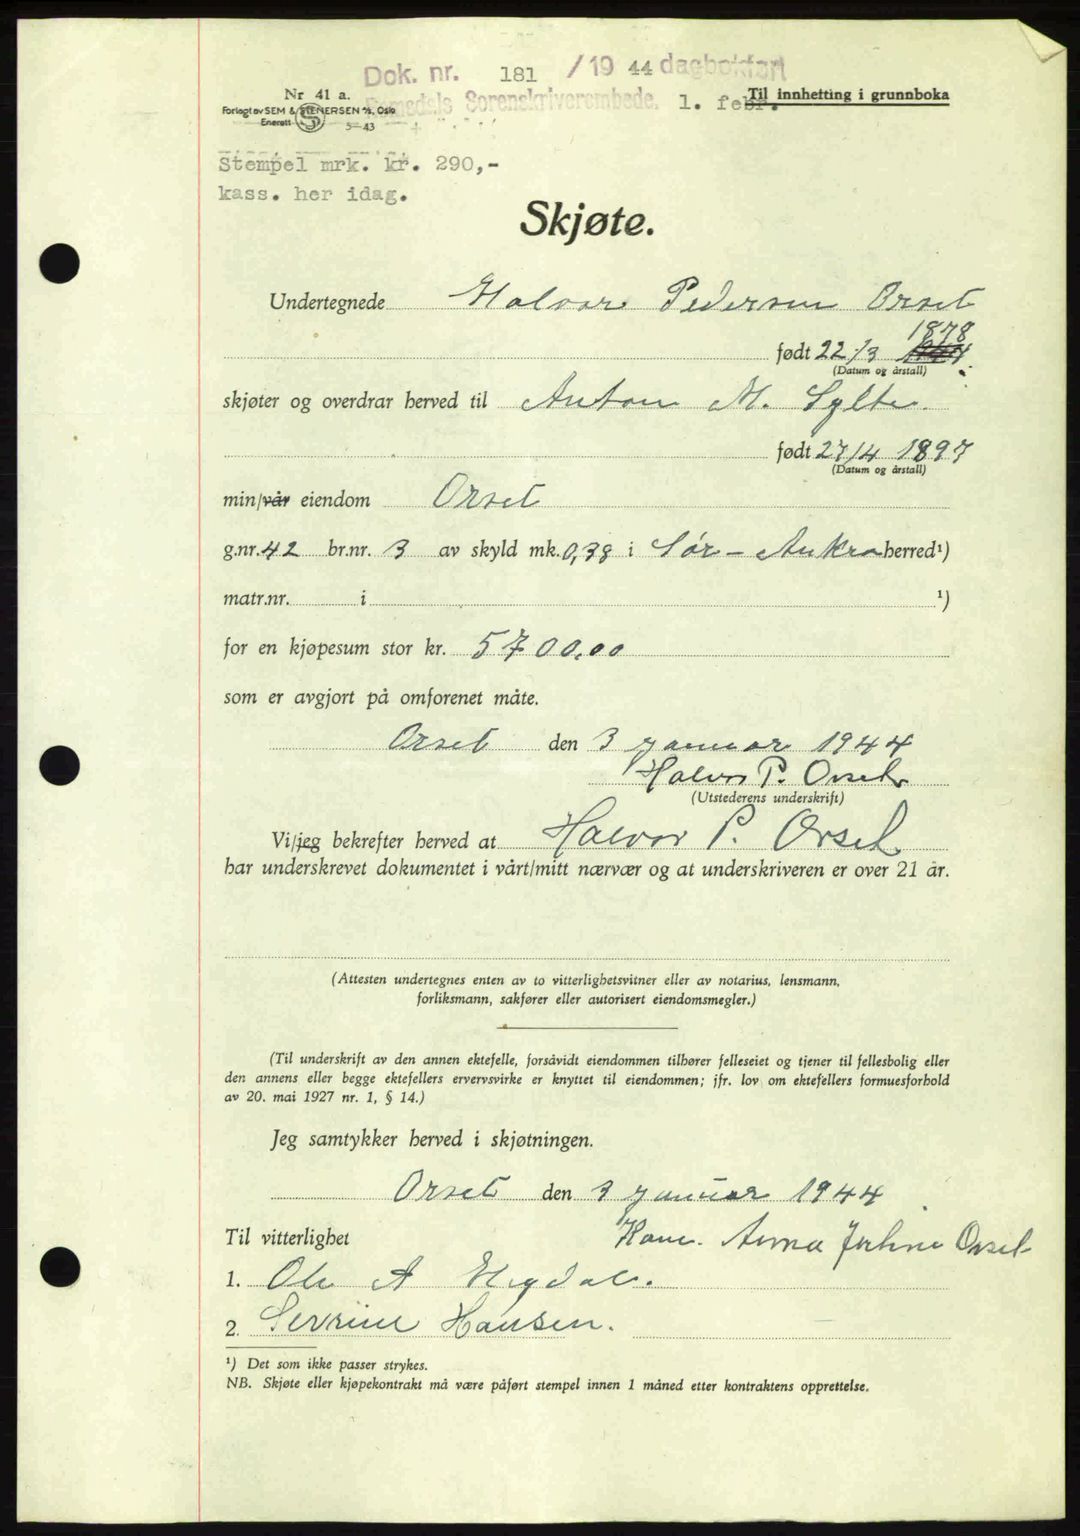 Dok. nr. 181 /19 44 dagbokført
Nr 41 a.
Til innhefting i grunnboka
Romsdals Sorenskriverembede. 1. febr.
Forlagt av SEM & STENERSEN A/S, Oslo
Enerett
5-43
Stempel mrk. kr. 290,-
kass. her idag.
Skjøte.
Undertegnede Halvor Pedersen Orset
1878
født 22/3
(Datum og årstall)
skjøter og overdrar herved til Anton M. Sylte.
født 27/4 1897
(Datum og årstall)
min/vår eiendom Orset
g.nr. 42 br.nr. 3 av skyld mk. 0,38 i Sør-Aukra herred¹)
matr.nr. i ¹)
for en kjøpesum stor kr. 5700,00
som er avgjort på omforenet måte.
Orset den 3 januar 1944
Halvor P. Orset
(Utstederens underskrift)
Vi/jeg bekrefter herved at Halvor P. Orset
har underskrevet dokumentet i vårt/mitt nærvær og at underskriveren er over 21 år.
(Attesten undertegnes enten av to vitterlighetsvitner eller av notarius, lensmann,
forliksmann, sakfører eller autorisert eiendomsmegler.)
(Til underskrift av den annen ektefelle, forsåvidt eiendommen tilhører felleseiet og tjener til fellesbolig eller
den annens eller begge ektefellers ervervsvirke er knyttet til eiendommen; jfr. lov om ektefellers formuesforhold
av 20. mai 1927 nr. 1, § 14.)
Jeg samtykker herved i skjøtningen.
Orset den 3 januar 1944
Til vitterlighet
Kone. Anna Orset
1. Ole A
2. Sevrine Hansen.
¹) Det som ikke passer strykes.
NB. Skjøte eller kjøpekontrakt må være påført stempel innen 1 måned etter kontraktens opprettelse.